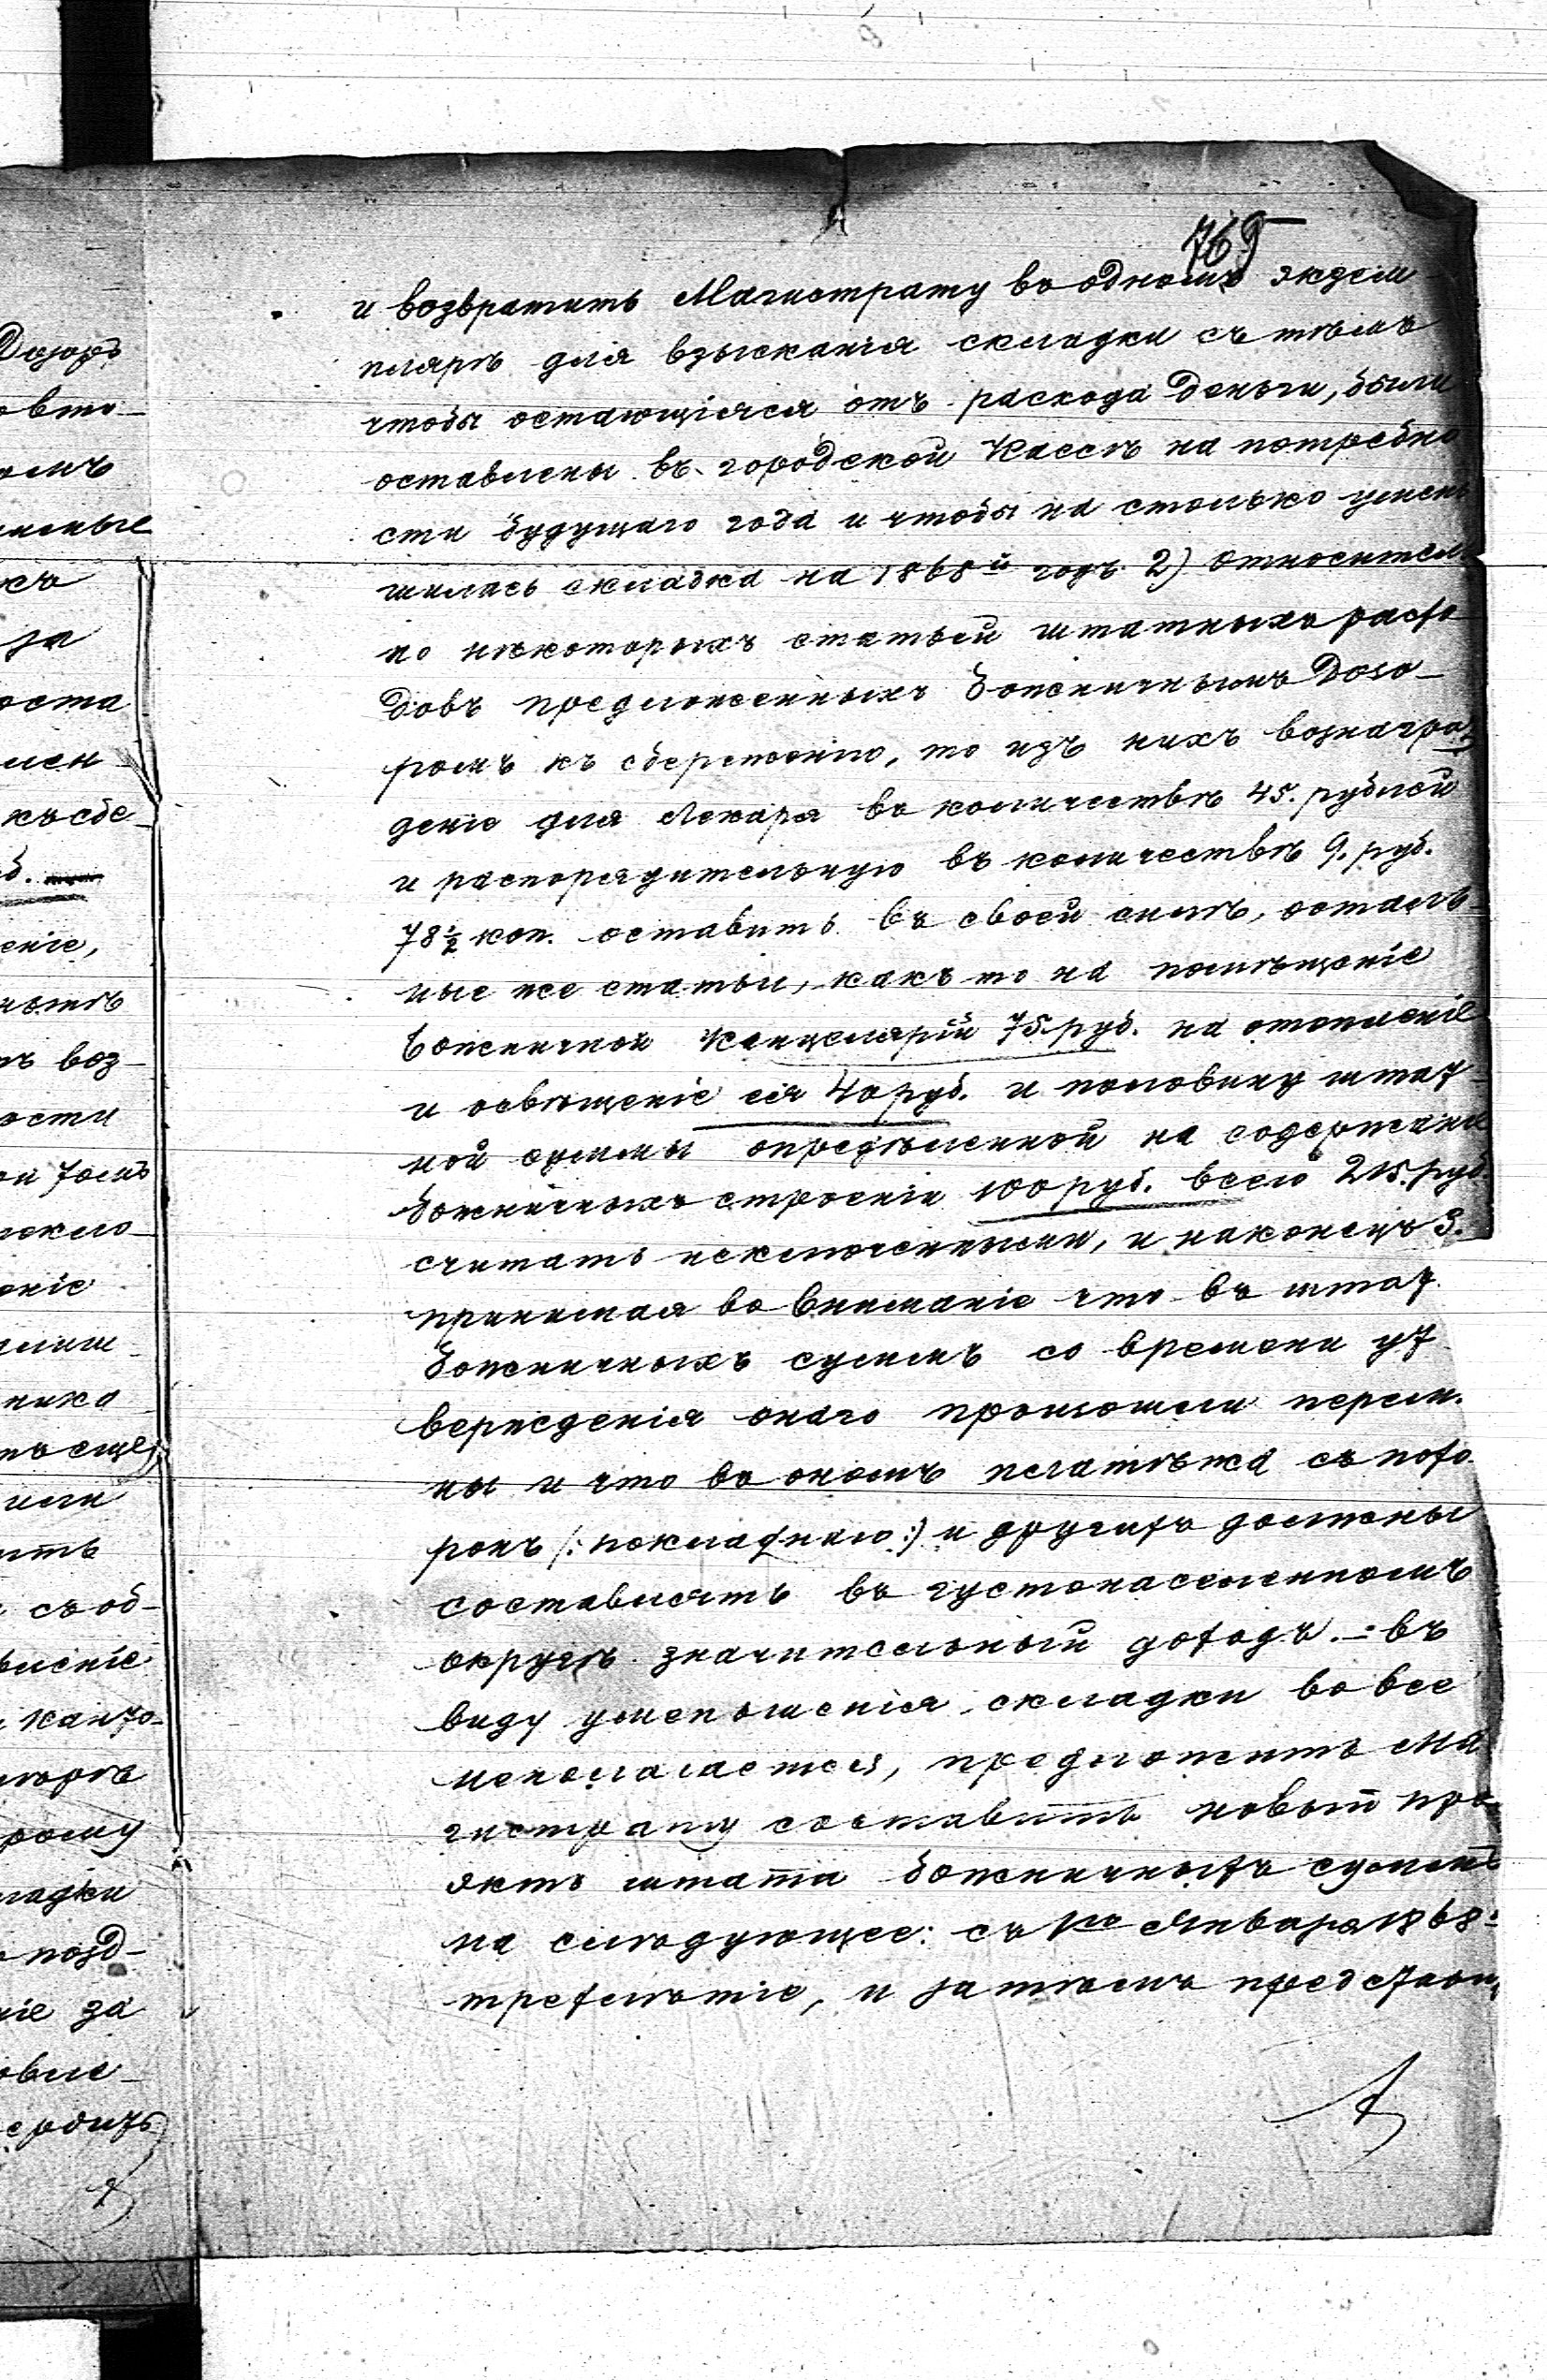 769
и возвратить Магистрату во одномъ экзем-
плярѣ для взысканія складки съ тѣмъ
чтобы остающіяся отъ расхода деньги, были
оставлены въ городской Кассѣ на потребно
сти будущаго года и чтобы на столько умень
шилась складка на 1868й годъ. 2) относитель
но нѣкоторыхъ статьей штатныхъ расхо
довъ предложенныхъ божничнымъ Дозо-
ромъ къ сбереженію, то изъ нихъ вознагра
деніе для Лекаря въ количествѣ 45. рублей
и распорядительную въ количествѣ 9. руб.
78½ коп. оставить въ своей силѣ, осталь-
ные же статьи, какъ то на помѣщеніе
Божничной Канцеляріи 75 руб. на отопленіе
и освѣщеніе ея 40 руб. и половину штат-
ной суммы опредѣленной на содержаніе
божничныхъ строеній 100 руб. всего 215. руб.
считать исключенными, и наконецъ 3.
принимая во вниманіе что въ штат.
божничныхъ суммъ со времени ут
вержденія онаго произошли перемѣ.
ны и что во ономъ платежа съ похо.
ронъ (: покладнаго :) и другихъ должны
составлять въ густонаселенномъ
округѣ значительный доходъ. – въ
виду уменьшенія складки во все
неполагается, предложить Ма
гистрату составить новый про
эктъ штата божничныхъ суммъ
на слѣдующее: съ 1го Января 1868:
трехлѣтіе, и за тѣмъ представи
Дозоръ
овто-
омъ
за
оста
мен-
къ сбе-
б.
еніе,
воз-
ости
оніе
ника
или
ить
съ об-
Канто-
рому
ладки
позд-
ніе за